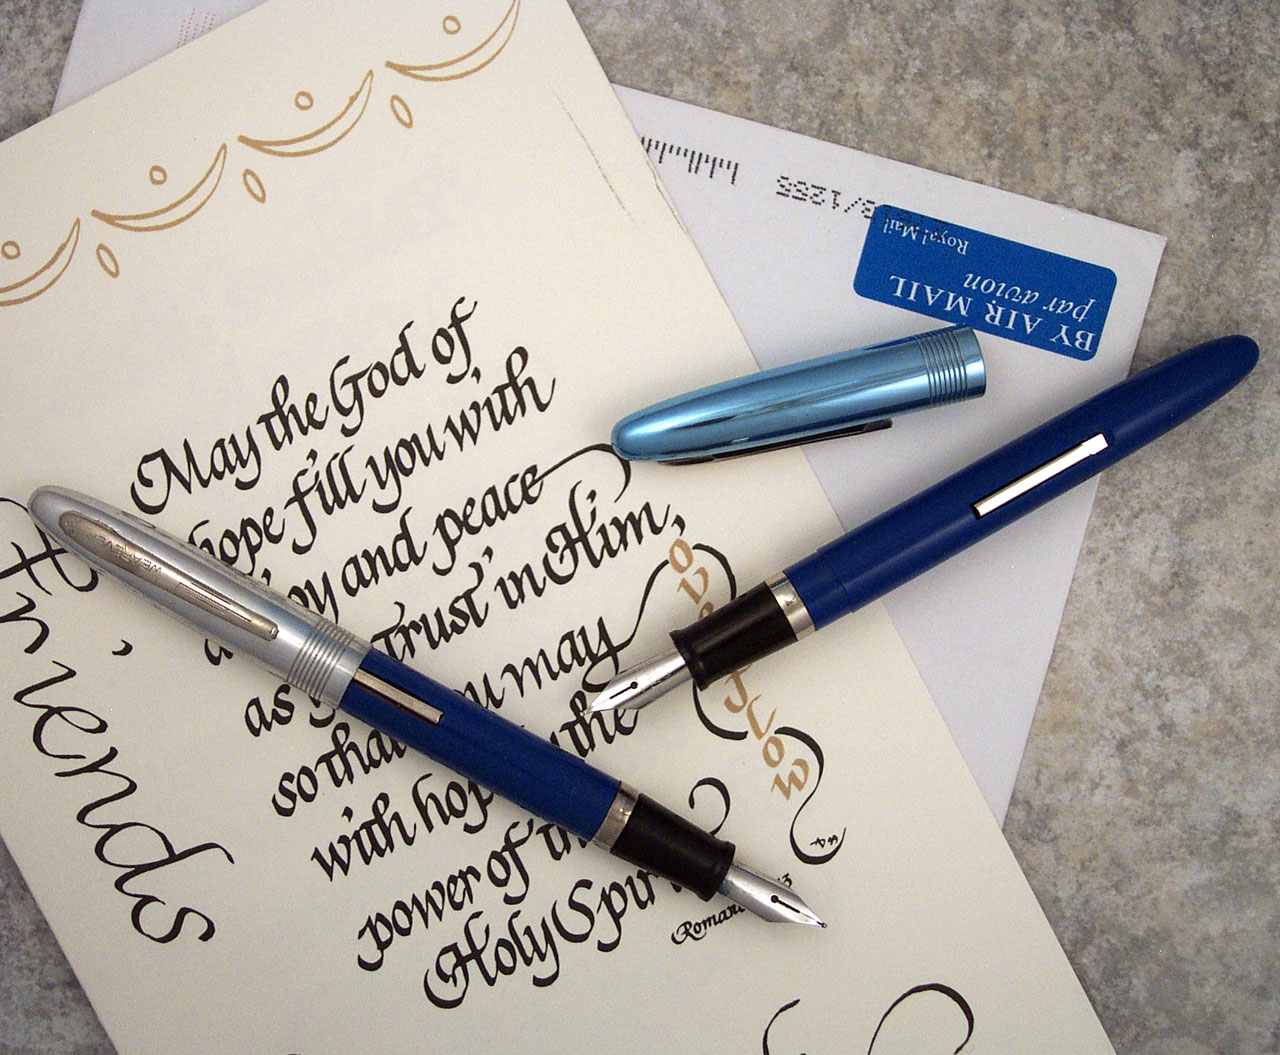 May the God of
hope fill you with
joy and peace
as trust in Him,
so that you may
with hope the
power of the
Holy Spirit
Friends
BY AIR MAIL
par avion
Royal Mail
WEAREVER